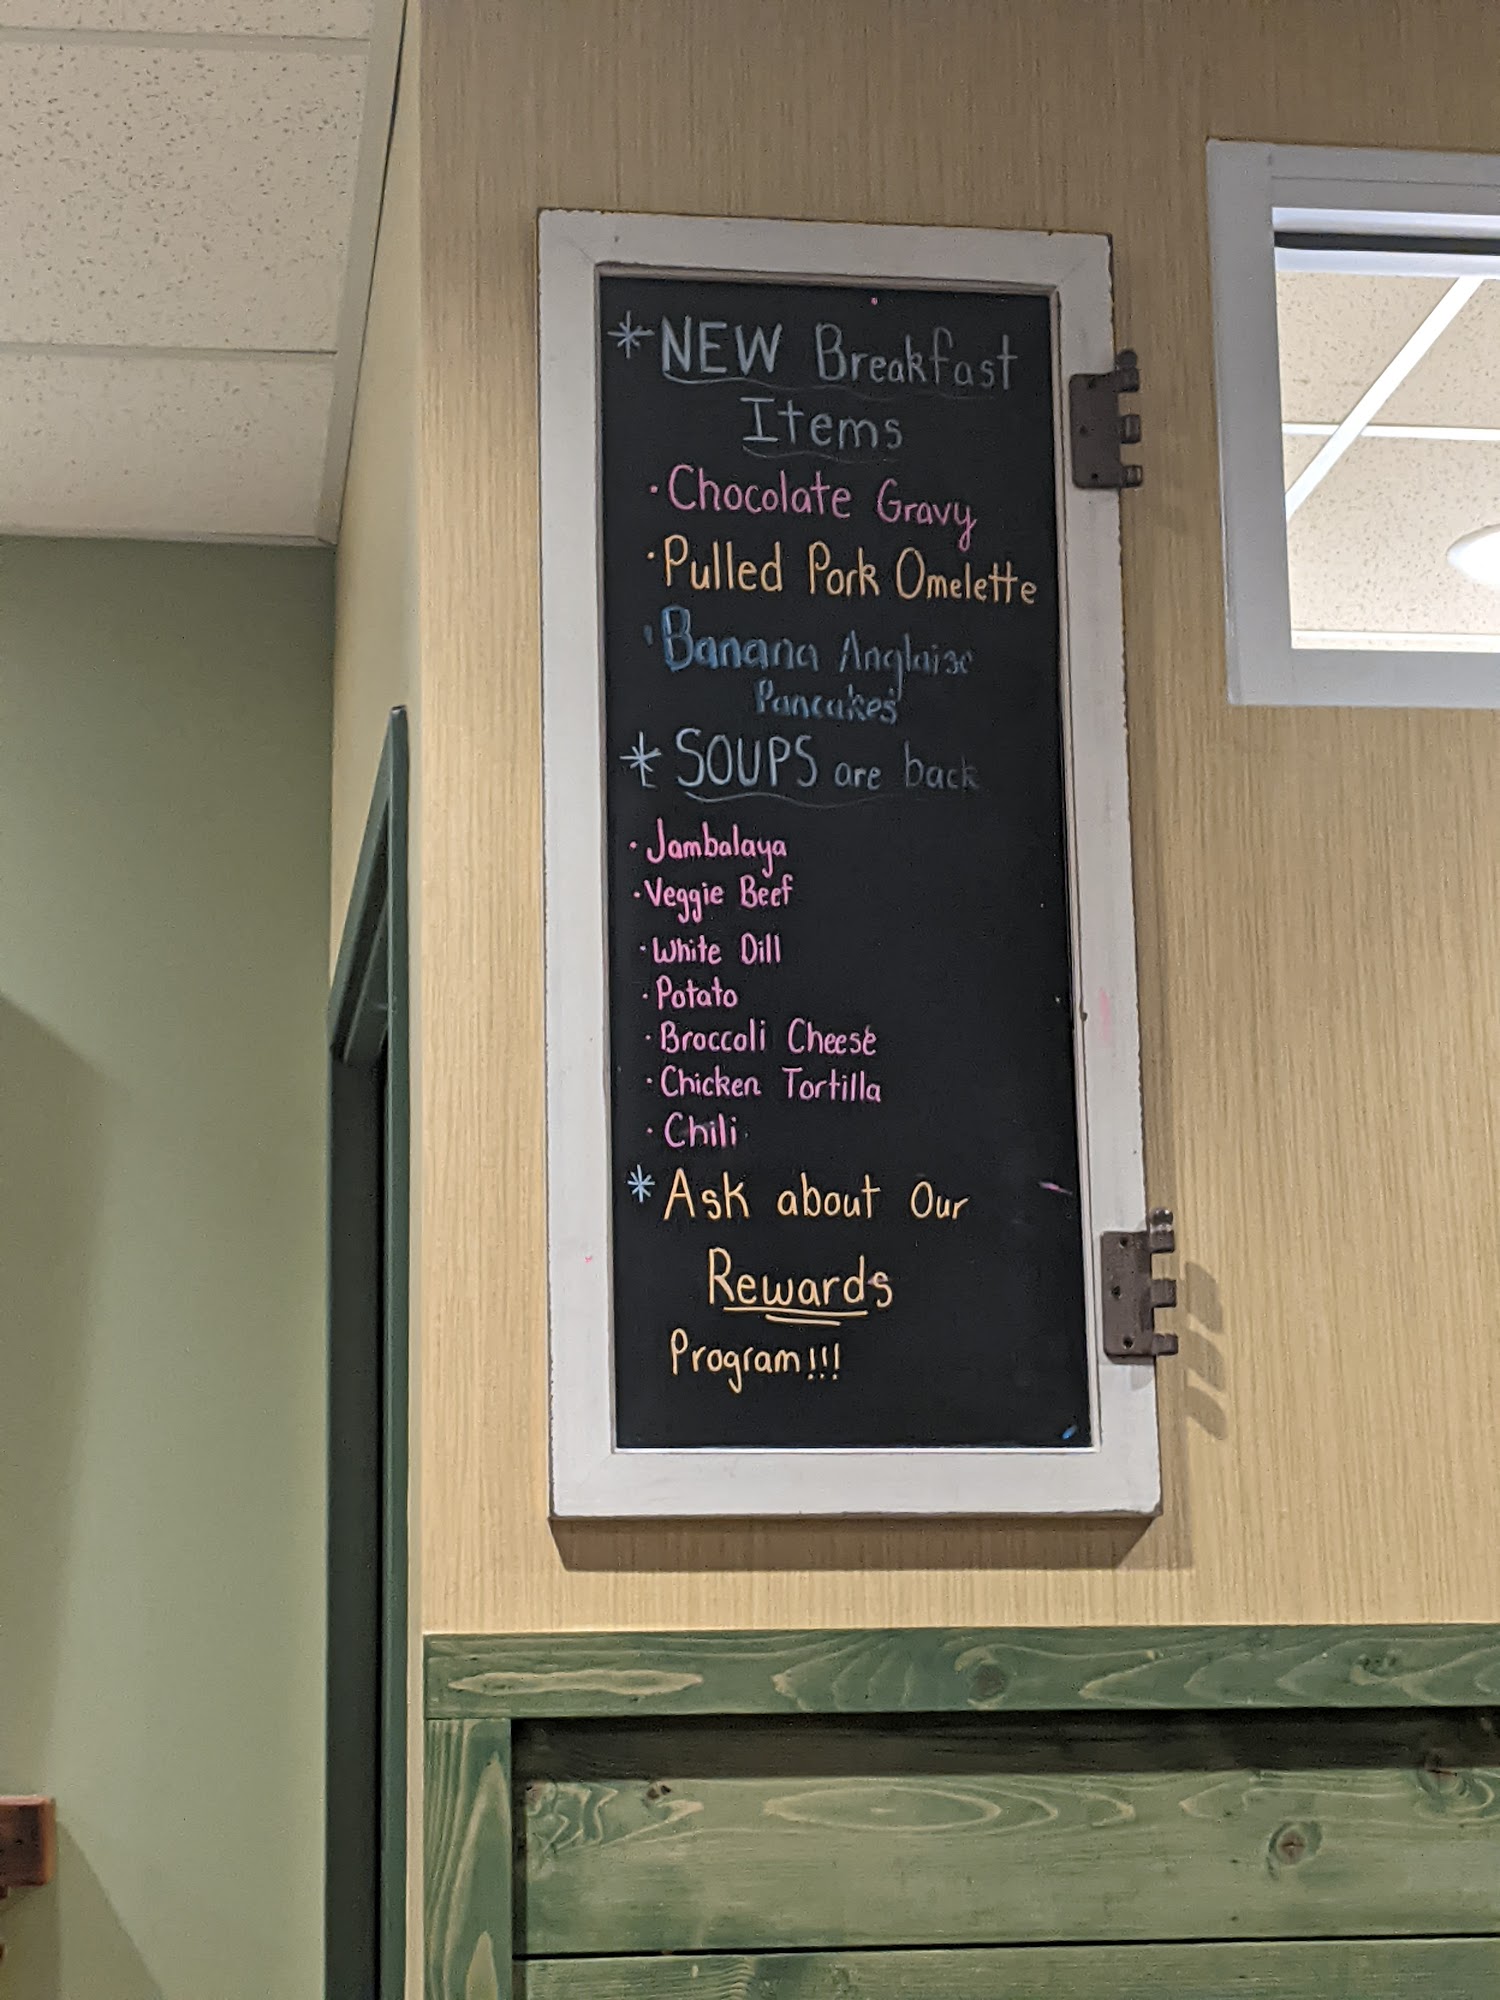 * NEW Breakfast
Items
· Chocolate Gravy
· Pulled Pork Omelette
· Banana Anglaise
Pancakes
* SOUPS are back
· Jambalaya
· Veggie Beef
· White Dill
· Potato
· Broccoli Cheese
· Chicken Tortilla
· Chili
* Ask about Our
Rewards
Program!!!